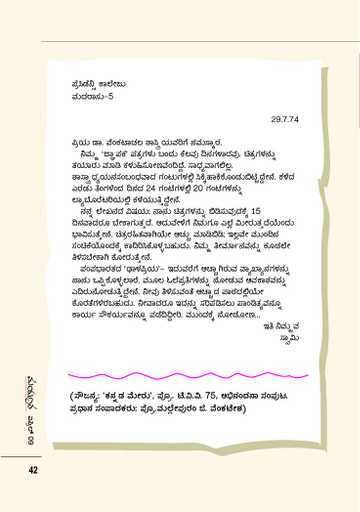 ಪ್ರೆಸಿಡೆನ್ಸಿ ಕಾಲೇಜು
ಮದರಾಸು-5
29.7.74
ಪ್ರಿಯ ಡಾ. ವೆಂಕಟಾಚಲ ಶಾಸ್ತ್ರಿಯವರಿಗೆ ನಮಸ್ಕಾರ.
ನಿಮ್ಮ 'ಜ್ಞಾಪಕ' ಪತ್ರಗಳು ಬಂದು ಕೆಲವು ದಿನಗಳಾದವು. ಚಿತ್ರಗಳನ್ನು
ತಯಾರು ಮಾಡಿ ಕಳುಹಿಸೋಣವೆಂದಿದ್ದೆ. ಸಾಧ್ಯವಾಗಲಿಲ್ಲ.
ಶಾಸ್ತ್ರಾಧ್ಯಯನಸಂಬಂಧವಾದ ಗಂಟುಗಳಲ್ಲಿ ಸಿಕ್ಕಿಹಾಕಿಕೊಂಡುಬಿಟ್ಟಿದ್ದೇನೆ. ಕಳೆದ
ಎರಡು ತಿಂಗಳಿಂದ ದಿನದ 24 ಗಂಟೆಗಳಲ್ಲಿ 20 ಗಂಟೆಗಳನ್ನು
ಲ್ಯಾಬೊರೆಟರಿಯಲ್ಲಿ ಕಳೆಯುತ್ತಿದ್ದೇನೆ.
ನನ್ನ ಲೇಖನದ ವಿಷಯ: ನಾನು ಚಿತ್ರಗಳನ್ನು ಬಿಡಿಸುವುದಕ್ಕೆ 15
ದಿನವಾದರೂ ಬೇಕಾಗುತ್ತದೆ. ಅದುವೇಳೆಗೆ ನಿಮಗೂ ಎಲ್ಲೆ ಮೀರುತ್ತದೆಯೆಂದು
ಭಾವಿಸುತ್ತೇನೆ. ಚಿತ್ರರಹಿತವಾಗಿಯೇ ಅಚ್ಚು ಮಾಡಿಬಿಡಿ; ಇಲ್ಲವೇ ಮುಂದಿನ
ಸಂಚಿಕೆಯೊಂದಕ್ಕೆ ಕಾದಿರಿಸಿಕೊಳ್ಳಬಹುದು. ನಿಮ್ಮ ತೀರ್ಮಾನವನ್ನು ಕೂಡಲೇ
ತಿಳಿಸಬೇಕಾಗಿ ಕೋರುತ್ತೇನೆ.
ಪಂಪಭಾರತದ
ನಾನು ಒಪ್ಪಿಕೊಳ್ಳಲಾರೆ. ಮೂಲ ಓಲೆಪ್ರತಿಗಳನ್ನು ನೋಡುವ ಅವಕಾಶವನ್ನು
ಎದಿರುನೋಡುತ್ತಿದ್ದೇನೆ. ನೀವು ತಿಳಿಸುವಂತೆ ಅಚ್ಚಾದ ಪಾಠದಲ್ಲಿಯೇ
ಕೊರತೆಗಳಿರಬಹುದು. ನೀವಾದರೂ ಇದನ್ನು ಸರಿಪಡಿಸಲು ಪಾಂಡಿತ್ಯವನ್ನೂ
ಕಾರ್ಯ ಸೌಕರ್ಯವನ್ನೂ ಪಡೆದಿದ್ದೀರಿ. ಮುಂದಕ್ಕೆ ನೋಡೋಣ...
ಇತಿ ನಿಮ್ಮವ
ಸ್ವಾಮಿ
(ಸೌಜನ್ಯ: 'ಕನ್ನಡ ಮೇರು', ಪ್ರೊ. ಟಿ.ವಿ.ವಿ. 75, ಅಭಿನಂದನಾ ಸಂಪುಟ.
ಪ್ರಧಾನ ಸಂಪಾದಕರು: ಪ್ರೊ.ಮಲ್ಲೇಪುರಂ ಜಿ. ವೆಂಕಟೇಶ)
42